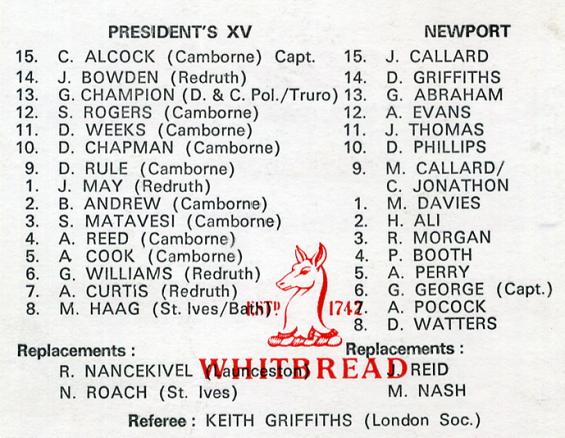 PRESIDENT'S XV
15. C. ALCOCK (Camborne) Capt.
14. J. BOWDEN (Redruth)
13. G. CHAMPION (D. & C. Pol./Truro)
12. S. ROGERS (Camborne)
11. D. WEEKS (Camborne)
10. D. CHAPMAN (Camborne)
9. D. RULE (Camborne)
1. J. MAY (Redruth)
2. B. ANDREW (Camborne)
3. S. MATAVESI (Camborne)
4. A. REED (Camborne)
5. A COOK (Camborne)
6. G. WILLIAMS (Redruth)
7. A. CURTIS (Redruth)
8. M. HAAG (St. Ives/Bath)
Replacements :
R. NANCEKIVEL (Launceston)
N. ROACH (St. Ives)
NEWPORT
15. J. CALLARD
14. D. GRIFFITHS
13. G. ABRAHAM
12. A. EVANS
11. J. THOMAS
10. D. PHILLIPS
9. M. CALLARD/
C. JONATHON
1. M. DAVIES
2. H. ALI
3. R. MORGAN
4. P. BOOTH
5. A. PERRY
6. G. GEORGE (Capt.)
7. A. POCOCK
8. D. WATTERS
Replacements :
REID
M. NASH
ESTD. 1742
WHITBREAD
Referee : KEITH GRIFFITHS (London Soc.)